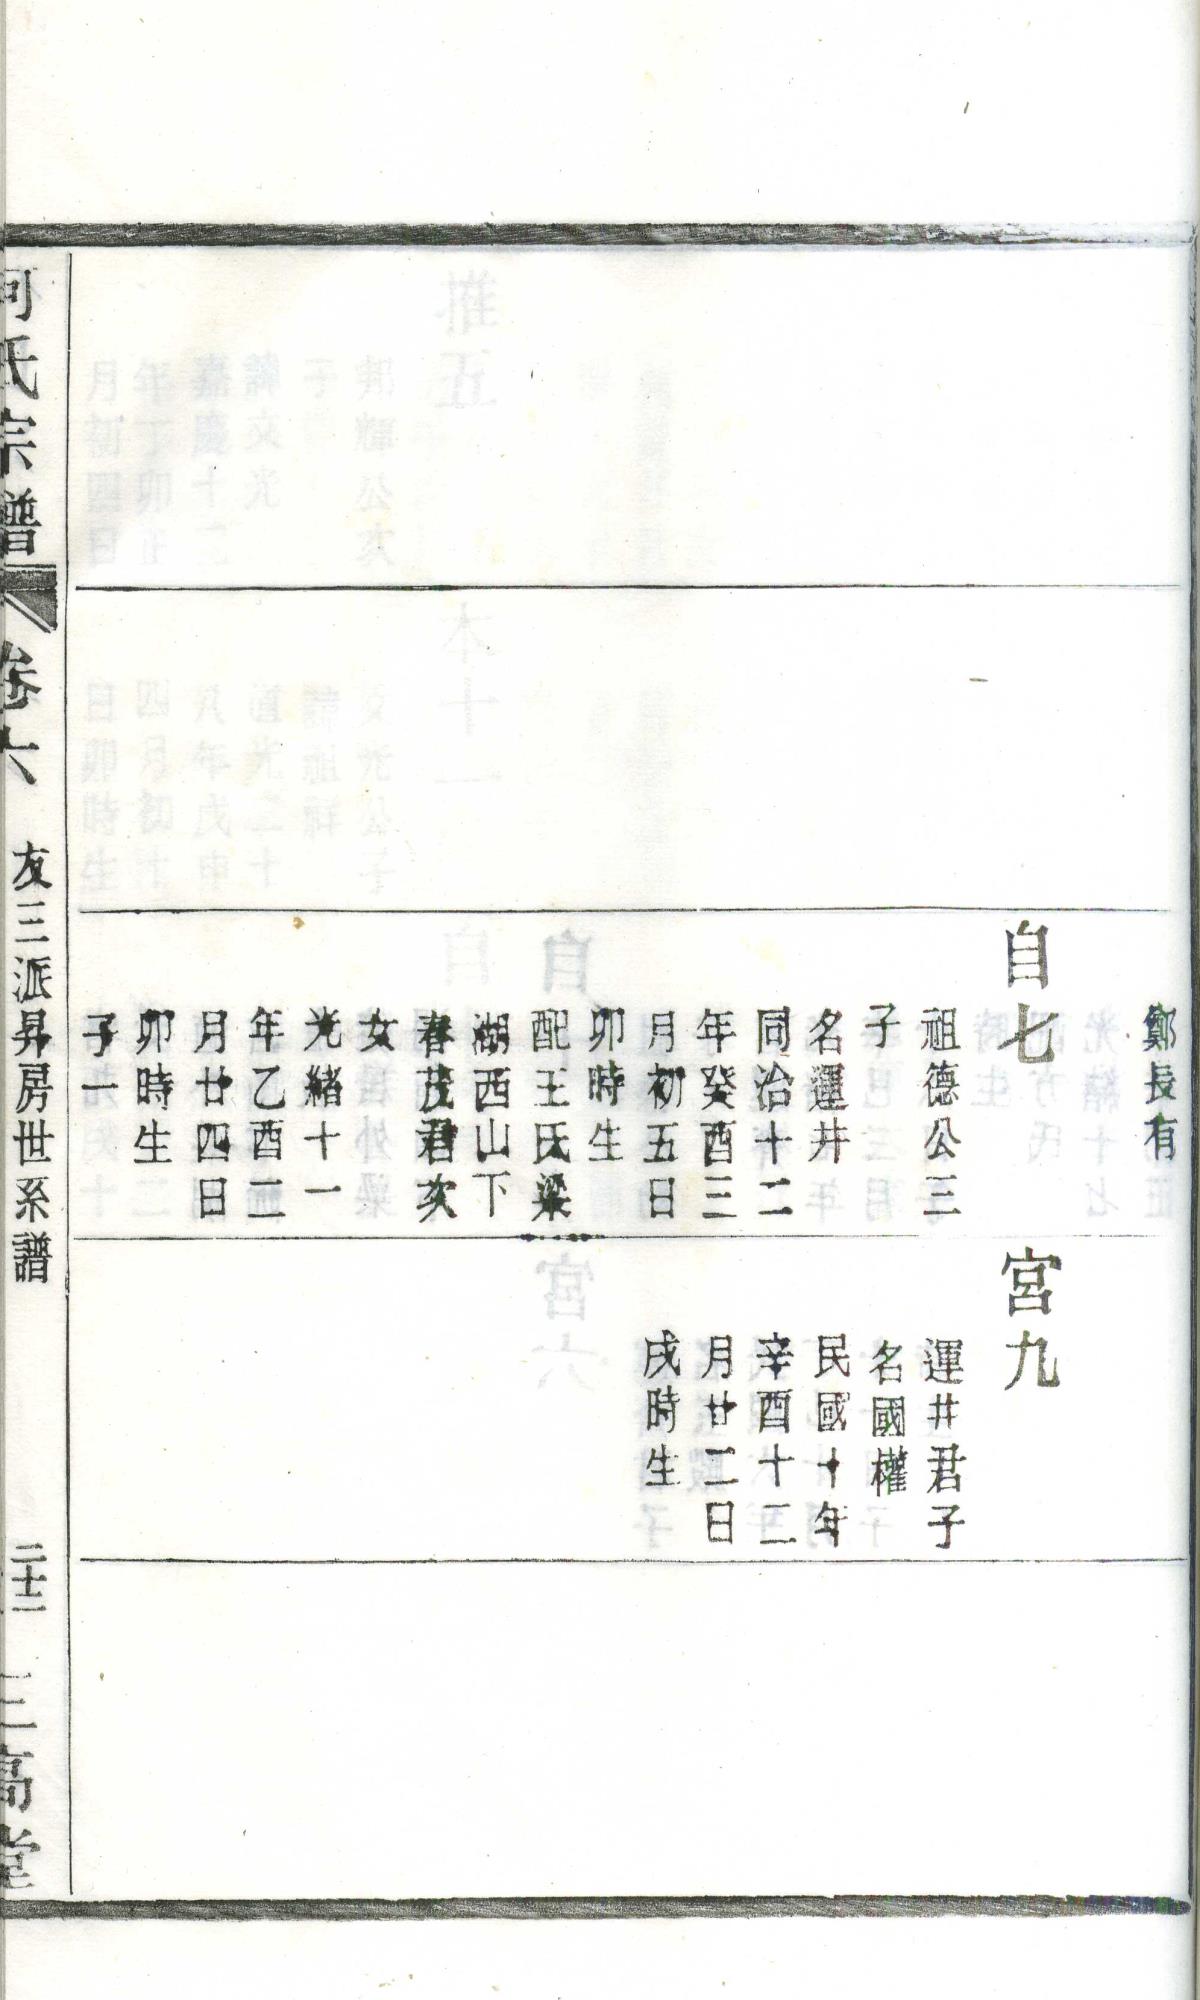 鄭長有
自七
祖德公三
子
名運井
同治十二
年癸酉三
月初五日
卯時生
配王氏梁
湖西山下
春茂君次
女
光緒十一
年乙酉二
月廿四日
卯時生
子一
宮九
運井君子
名國權
民國十年
辛酉十二
月廿二日
戌時生
氏宗譜
卷六
友三派昇房世系譜
三高堂